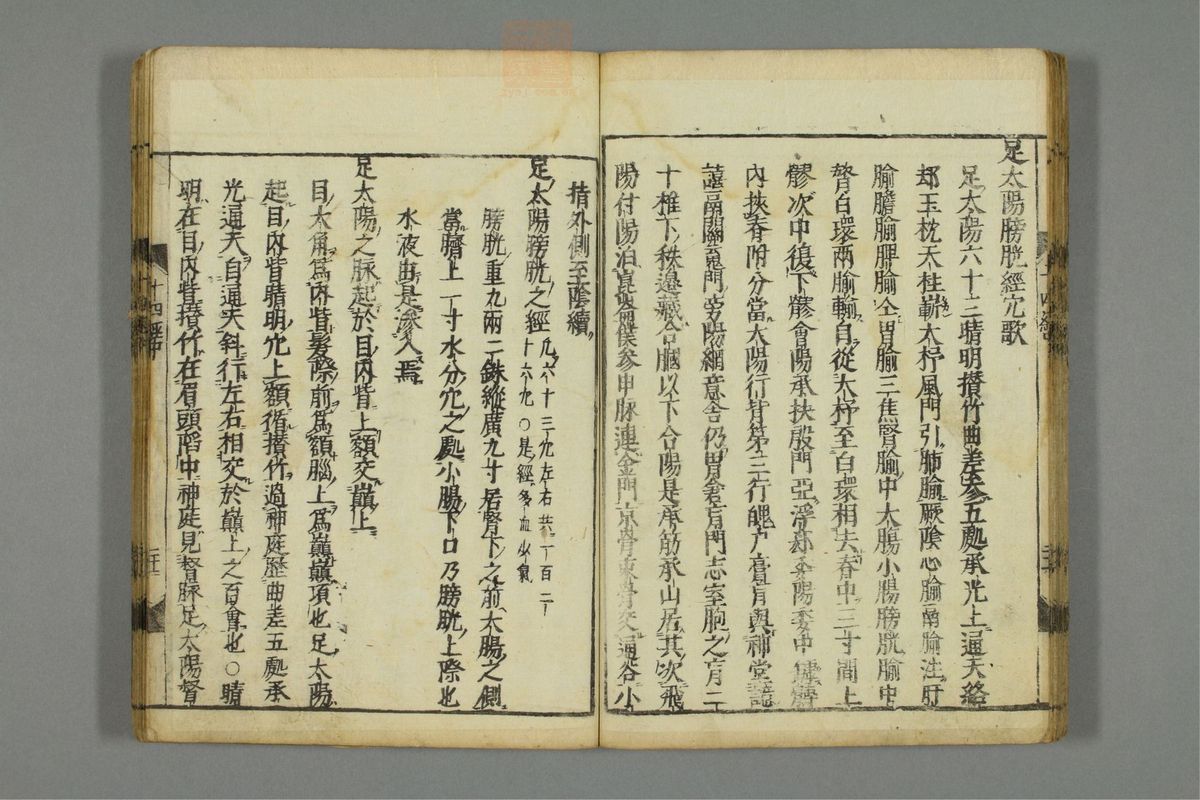 足太陽膀胱經穴歌
足太陽六十三睛明攅竹曲差参五處承光上通天絡
却玉枕天柱嶄太杼風門引肺腧厥陰心腧膈腧注肝
腧膽腧脾腧仝胃腧三焦腎腧中大腸小腸膀胱腧中
膂白環兩腧輸自從大杼至白環相去脊中二寸間上
髎次中復下髎會陽承扶殷門亞浮郄委陽委中
内挾脊附分當太陽行背第三行魄户膏肓與神堂譩
譆膈關魂門旁陽綱意舎仍胃倉肓門志室胞之肓二
十椎下秩邊藏合膕以下合陽是承筋承山居其次飛
陽付陽泊崑崙僕参申脉連金門京骨束骨交通谷小
指外側至陰續
足太陽膀胱之經 凡六十三穴左右共一百二十六穴○是經多血少氣
膀胱重九兩二銖縱廣九寸居腎下之前大腸之側
當臍上一寸水分穴之處小腸下口乃膀胱上際也
水液由是滲入焉
足太陽之脉起於目内眥上額交巓上
目大角爲内眥髮際前爲額腦上爲巓巓頂也足太陽
起目内眥睛明穴上額循攅竹過神庭歷曲差五處承
光通天自通天斜行左右相交於巓上之百會也○睛
明在目内眥攅竹在眉頭陷中神庭見督脉足太陽督
十四經中
二十一